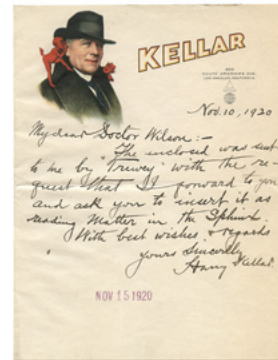 KELLAR
Nov. 10, 1920
My dear Doctor Wilson:-
The enclosed was sent
to me by "Trewey" with the re-
quest that I forward to you
and ask you to insert it as
reading matter in the Sphinx.
With best wishes & regards
Yours Sincerely
Harry Kellar.
NOV 15 1920